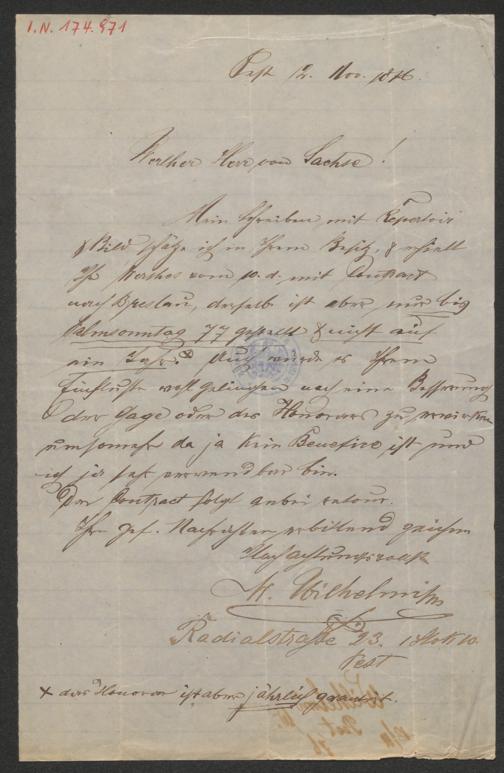 I.N. 174.971
Pest 12. Nov. 1876.
Werther Herr von Sachse!
Mein Schreiben mit Repertoir
& Bild, ich in Ihrem Besitz, & erhielt
Ihr Werthes vom 10. d. mit Contract
nach Breslau, derselbe ist aber nur bis
Palmsonntag 77 gestellt & nicht auf
ein Jahr. x Auch würde es Ihrem
Einflusse wohl gelingen noch eine Besserung
der Gage oder des Honorars zu
umsomehr da ja kein Benefice ist und
ich ja sehr verwendbar bin.
Der Contract folgt anbei retour.
Ihre gef. Nachrichten erbittend zeichne
Hochachtungsvollst
M. Wilhelmi
Radialstraße 23. 1 Stok 10.
Pest
x das Honorar ist aber jährlich garantirt.